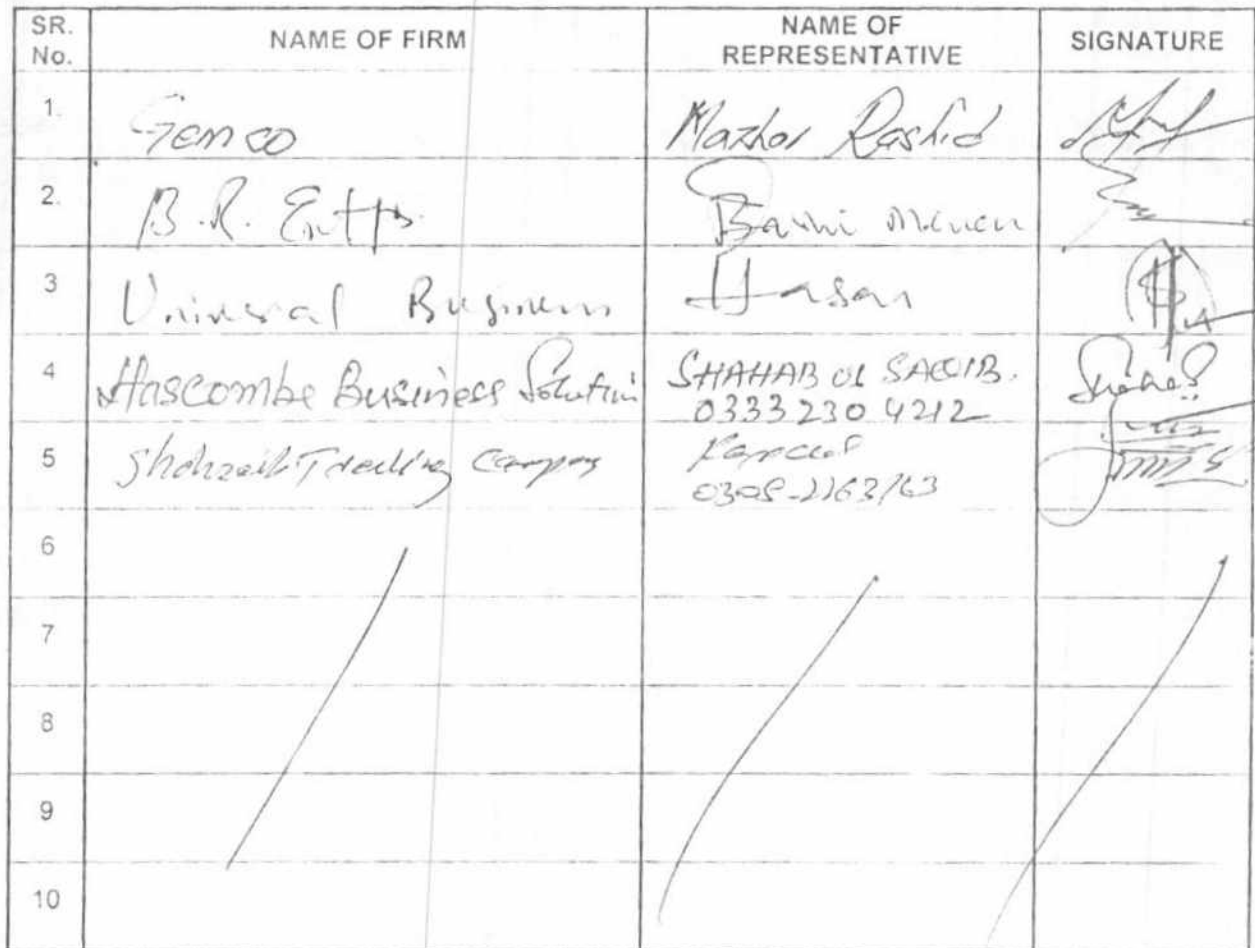 SR. No. NAME OF FIRM NAME OF REPRESENTATIVE SIGNATURE
1. Gemco Mazhar Rashid
2. B.R. Entps.
3 Universal Business Hasan
4 Hascombe Business Solution SHAHAB UL SAQIB.
0333 230 4212
5 Trading Company
6
7
8
9
10